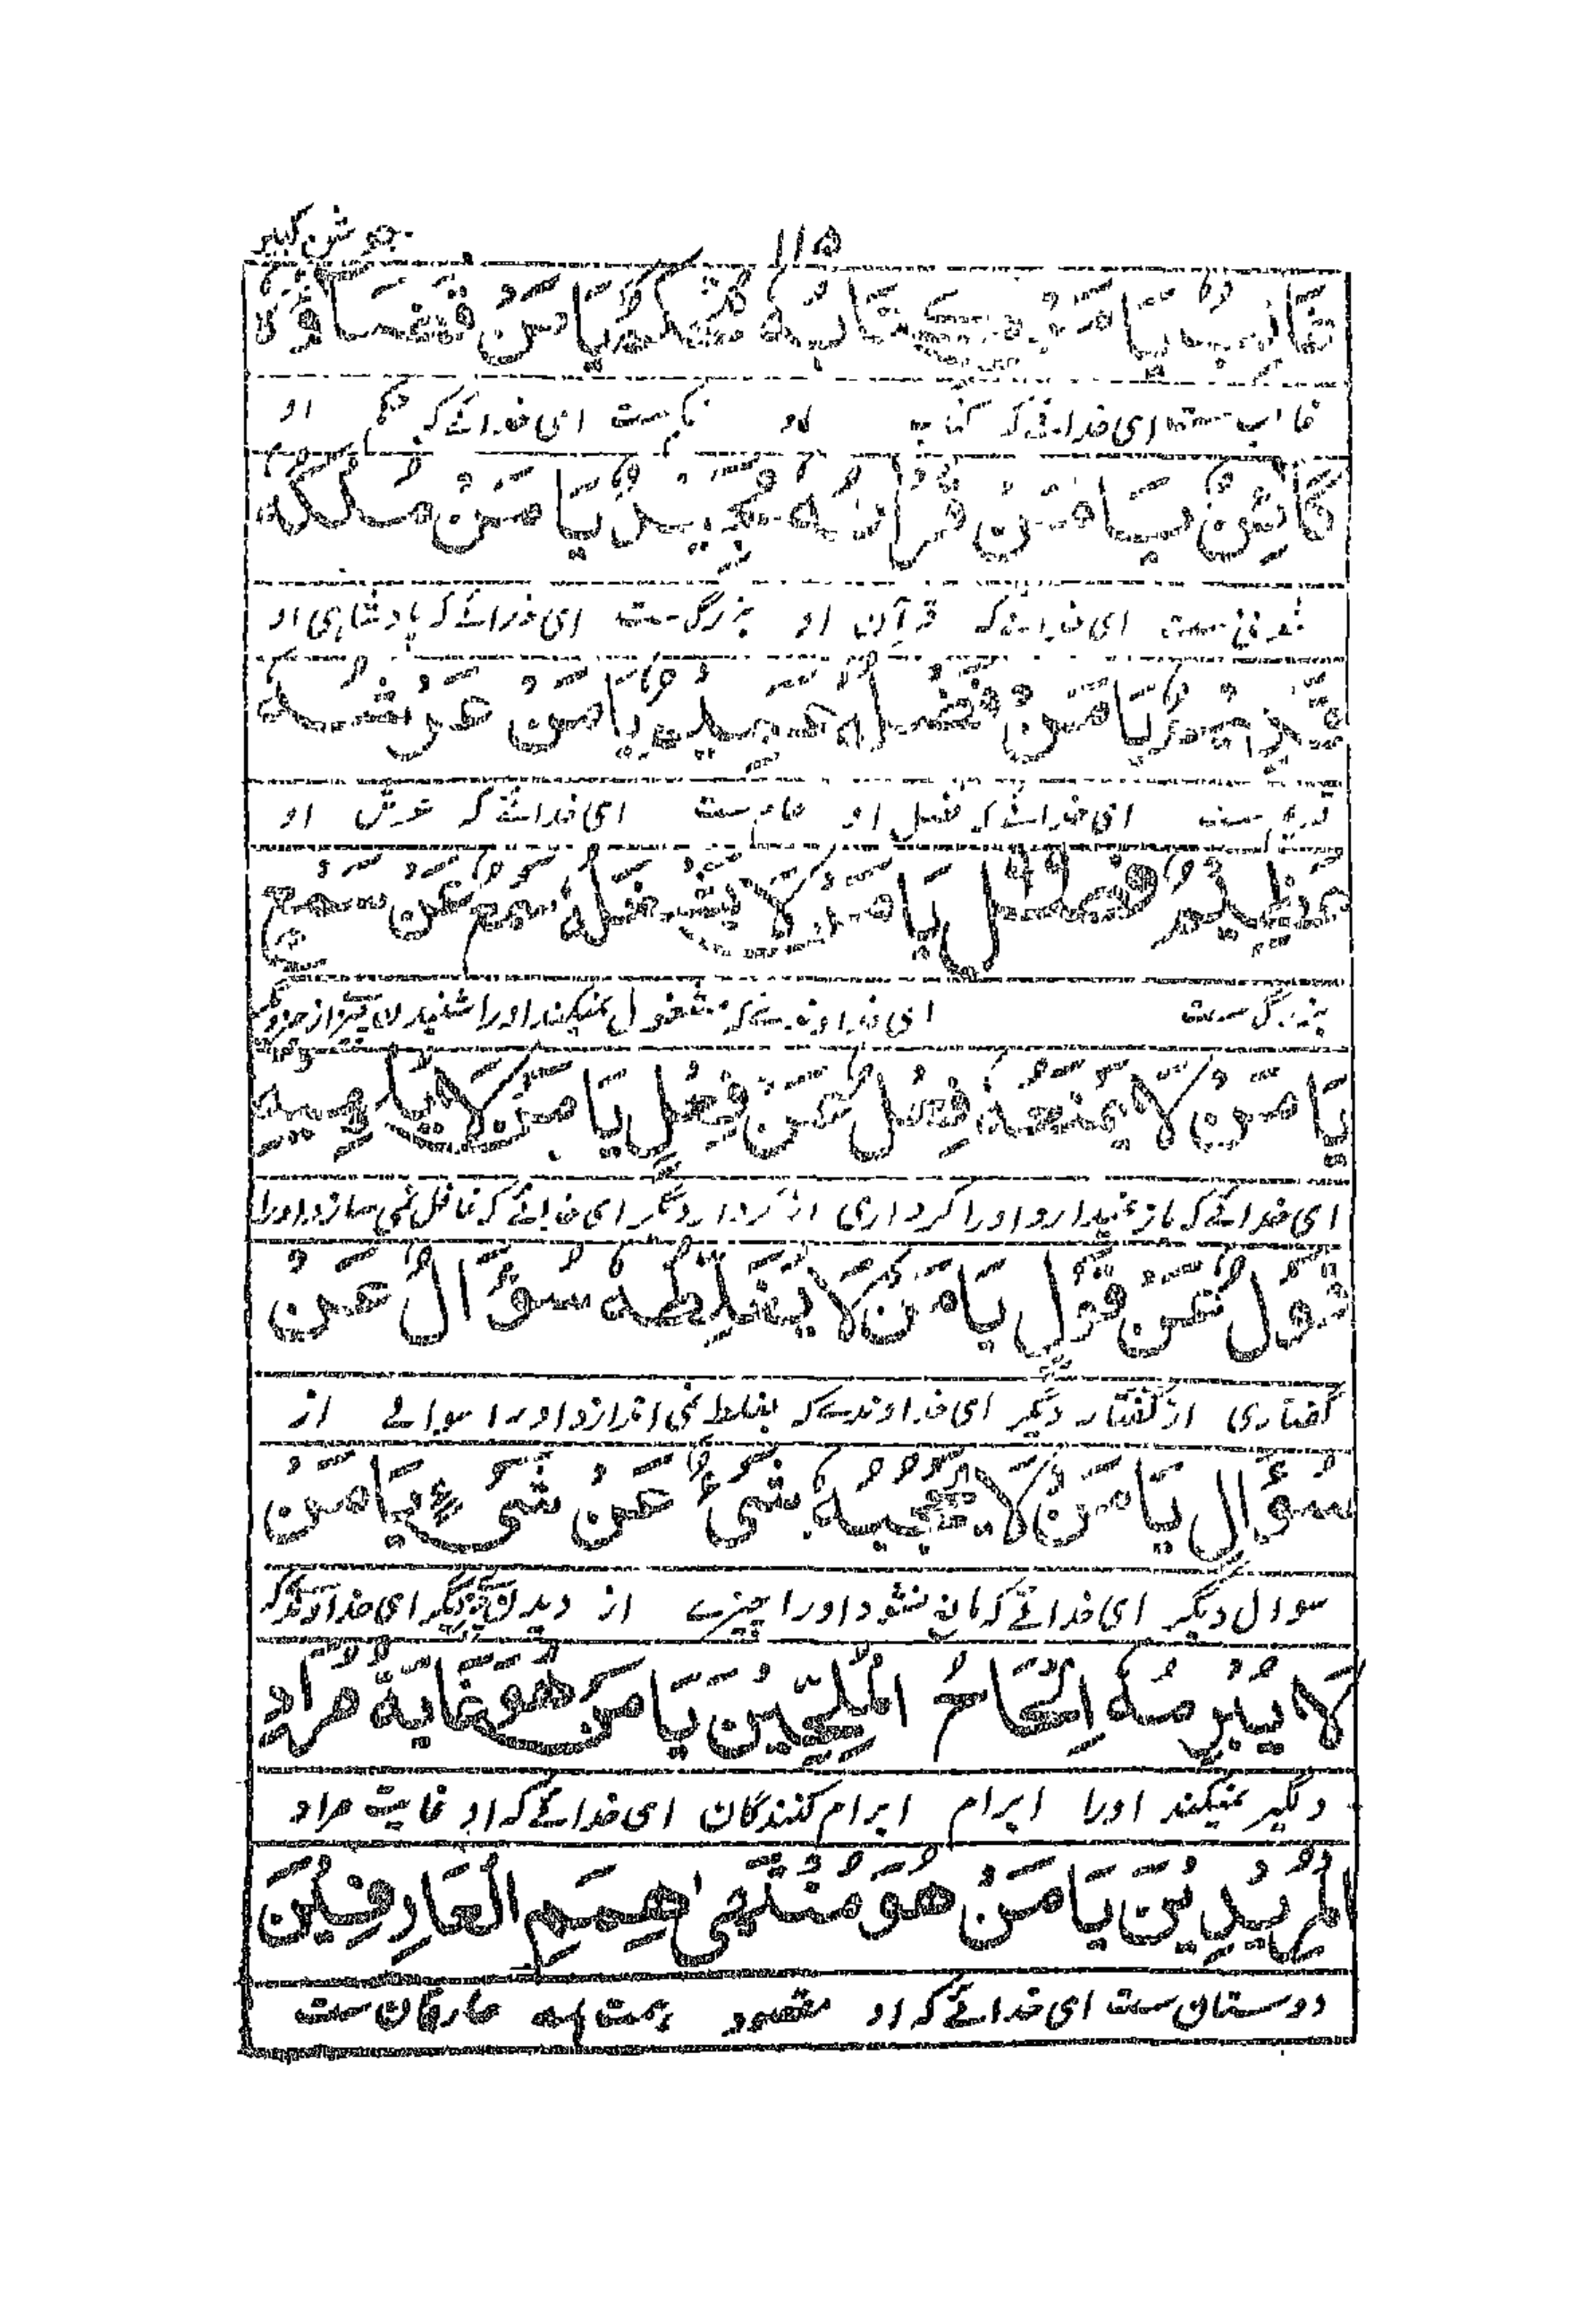 جوشن کبیر
۱۱۵
غَالِبٌ يَا مَنْ كِتَابُهُ مُحْكَمٌ يَا مَنْ قَضَاؤُهُ
غالب ست ای خدائے که کتاب او محکم ست ای خدائے که حکم او
كَائِنٌ يَا مَنْ قُرْآنُهُ مَجِيدٌ يَا مَنْ مُلْكُهُ
ست ای خدائے که قرآن او بزرگ ست ای خدائے که پادشاهی او
قَدِيمٌ يَا مَنْ فَضْلُهُ عَمِيمٌ يَا مَنْ عَرْشُهُ
قدیم ست ای خدائے که فضل او عام ست ای خدائے که عرش او
عَظِيمٌ فصل ۹۹ يَا مَنْ لَا يَشْغَلُهُ سَمْعٌ عَنْ سَمْعٍ
بزرگ ست ای خداوندے که مشغول نمیکند او را شنیدن
يَا مَنْ لَا يَمْنَعُهُ فِعْلٌ عَنْ فِعْلٍ يَا مَنْ لَا يُلْهِيهِ
ای خدائے که باز نمیدارد او را کرداری از کردار دیگر ای خدائے که غافل نمی سازد او را
قَوْلٌ عَنْ قَوْلٍ يَا مَنْ لَا يُغَلِّطُهُ سُؤَالٌ عَنْ
گفتاری از گفتار دیگر ای خداوندے که بغلط نمی اندازد او را سوالے از
سُؤَالٍ يَا مَنْ لَا يَحْجُبُهُ شَيْءٌ عَنْ شَيْءٍ يَا مَنْ
سوال دیگر ای خدائے که مانع نشود او را چیزے از دیدن چیز دیگر ای خداوندیکه
لَا يُبْرِمُهُ إِلْحَاحُ الْمُلِحِّينَ يَا مَنْ هُوَ غَايَةُ مُرَادِ
دلگیر نمیکند او را ابرام ابرام کنندگان ای خدائے که او غایت مراد
الْمُرِيدِينَ يَا مَنْ هُوَ مُنْتَهَى هِمَمِ الْعَارِفِينَ
دوستان ست ای خدائے که او مقصود همت عارفان ست